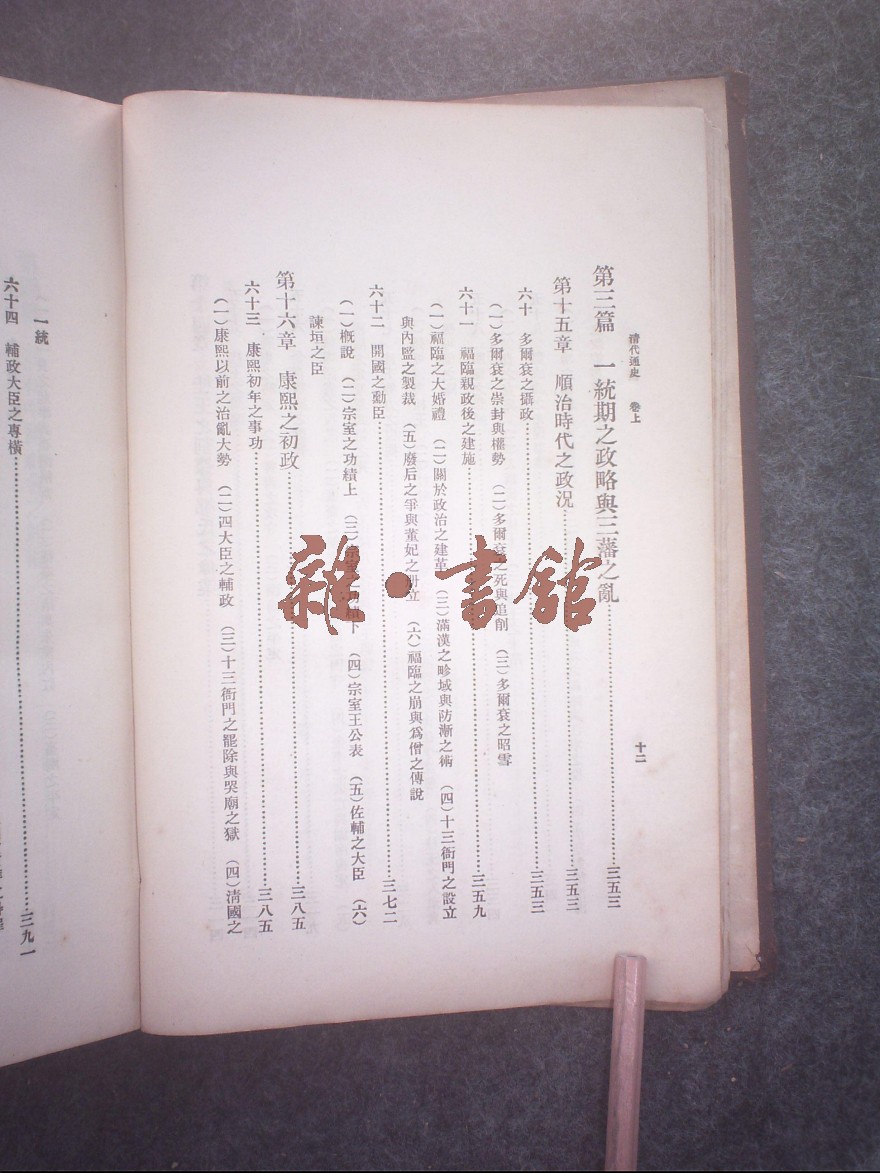 清代通史 卷上 十二
第三篇 一統期之政略與三藩之亂……三五三
第十五章 順治時代之政況……三五三
六十 多爾袞之攝政……三五三
(一)多爾袞之崇封與權勢 (二)多爾袞之死與追削 (三)多爾袞之昭雪
六十一 福臨親政後之建施……三五九
(一)福臨之大婚禮 (二)關於政治之建革 (三)滿漢之畛域與防漸之術 (四)十三衙門之設立
與內監之製裁 (五)廢后之爭與董妃之冊立 (六)福臨之崩與爲僧之傳說
六十二 開國之勳臣……三七二
(一)概說 (二)宗室之功績上 (三)宗室之功績下 (四)宗室王公表 (五)佐輔之大臣 (六)
諫垣之臣
第十六章 康熙之初政……三八五
六十三 康熙初年之事功……三八五
(一)康熙以前之治亂大勢 (二)四大臣之輔政 (三)十三衙門之罷除與哭廟之獄 (四)清國之
一統
六十四 輔政大臣之專橫……三九一
雜·書館